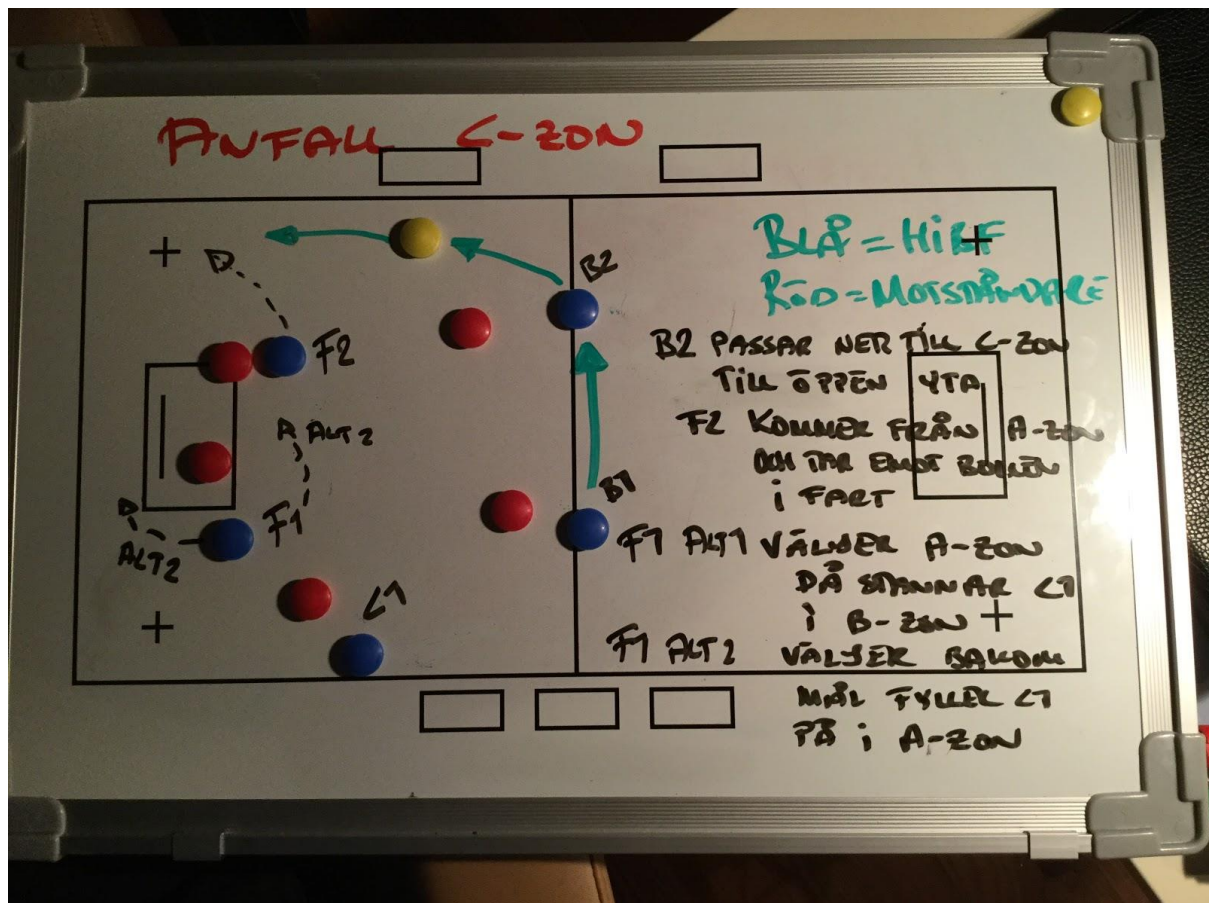 ANFALL C-ZON
BLÅ = HIBF
RÖD = MOTSTÅNDARE
B2
B2 PASSAR NER TILL C-ZON
TILL ÖPPEN YTA
F2
F2 KOMMER FRÅN A-ZON
OCH TAR EMOT BOLLEN
I FART
ALT 2
B1
F1
ALT 2
F1 ALT1 VÄLJER A-ZON
DÅ STANNAR C1
I B-ZON
C1
F1 ALT 2 VÄLJER BAKOM
MÅL FYLLER C1
PÅ I A-ZON